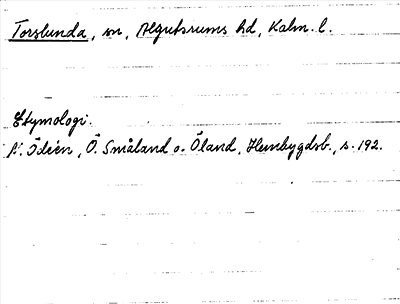 Torslunda, sn, Algutsrums hd, Kalm. l.
Etymologi.
N. Ödeen, Ö. Småland o. Öland, Hembygdsb., s. 192.